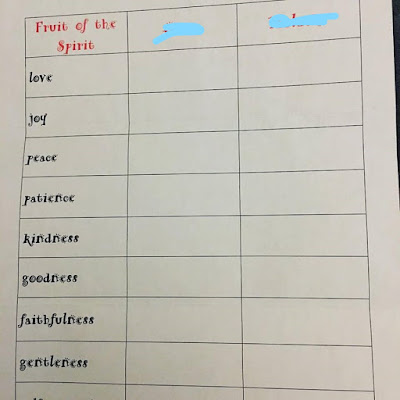 Fruit of the
Spirit
love
joy
peace
patience
kindness
goodness
faithfulness
gentleness